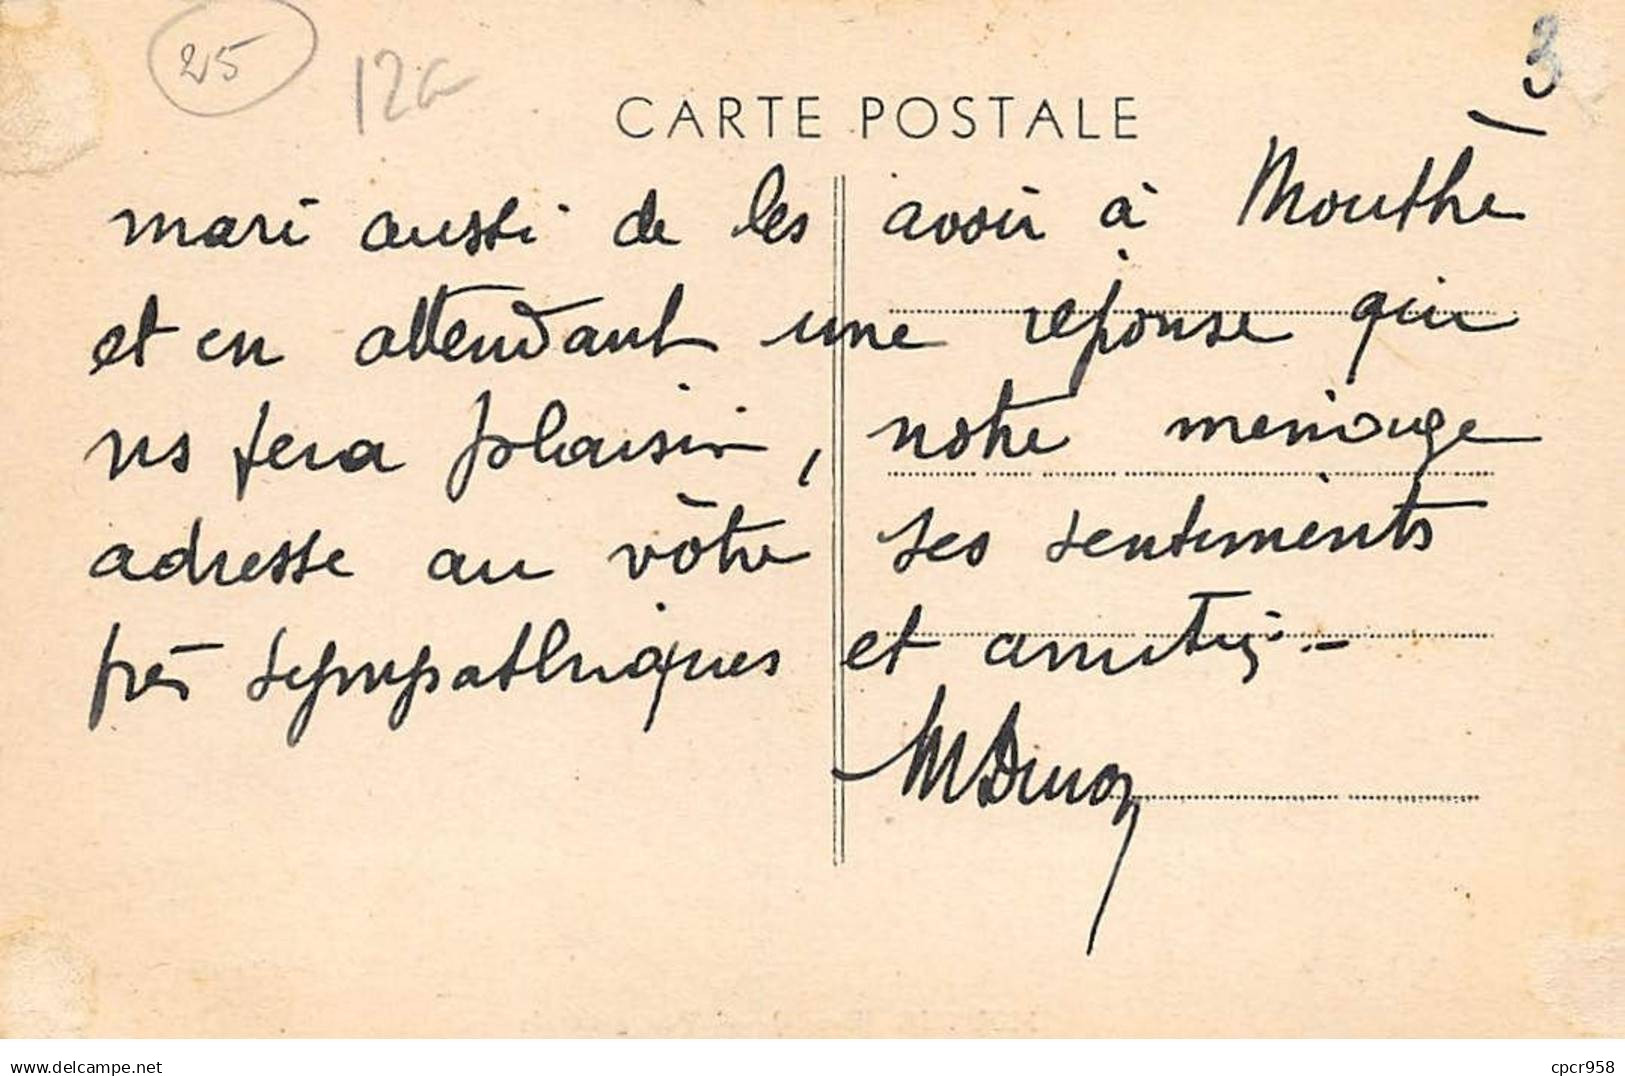 25 12a 3
CARTE POSTALE
mari aussi de les avoir à Mouthe
et en attendant une réponse qui
ns fera plaisir, notre ménage
adresse au vôtre ses sentiments
très sympathiques et amitiés.-
Delcampe.net
cpcr958